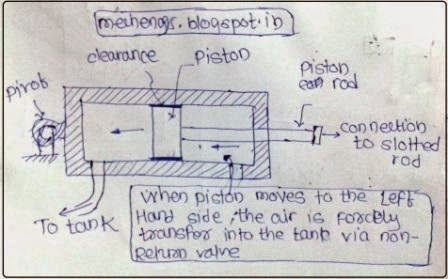 mechengg.blogspot.in
clearance
piston
pivot
Piston
rod
connection
to slotted
rod
To tank
When piston moves to the Left
Hand side, the air is forcely
transfer into the tank via non-
Return valve